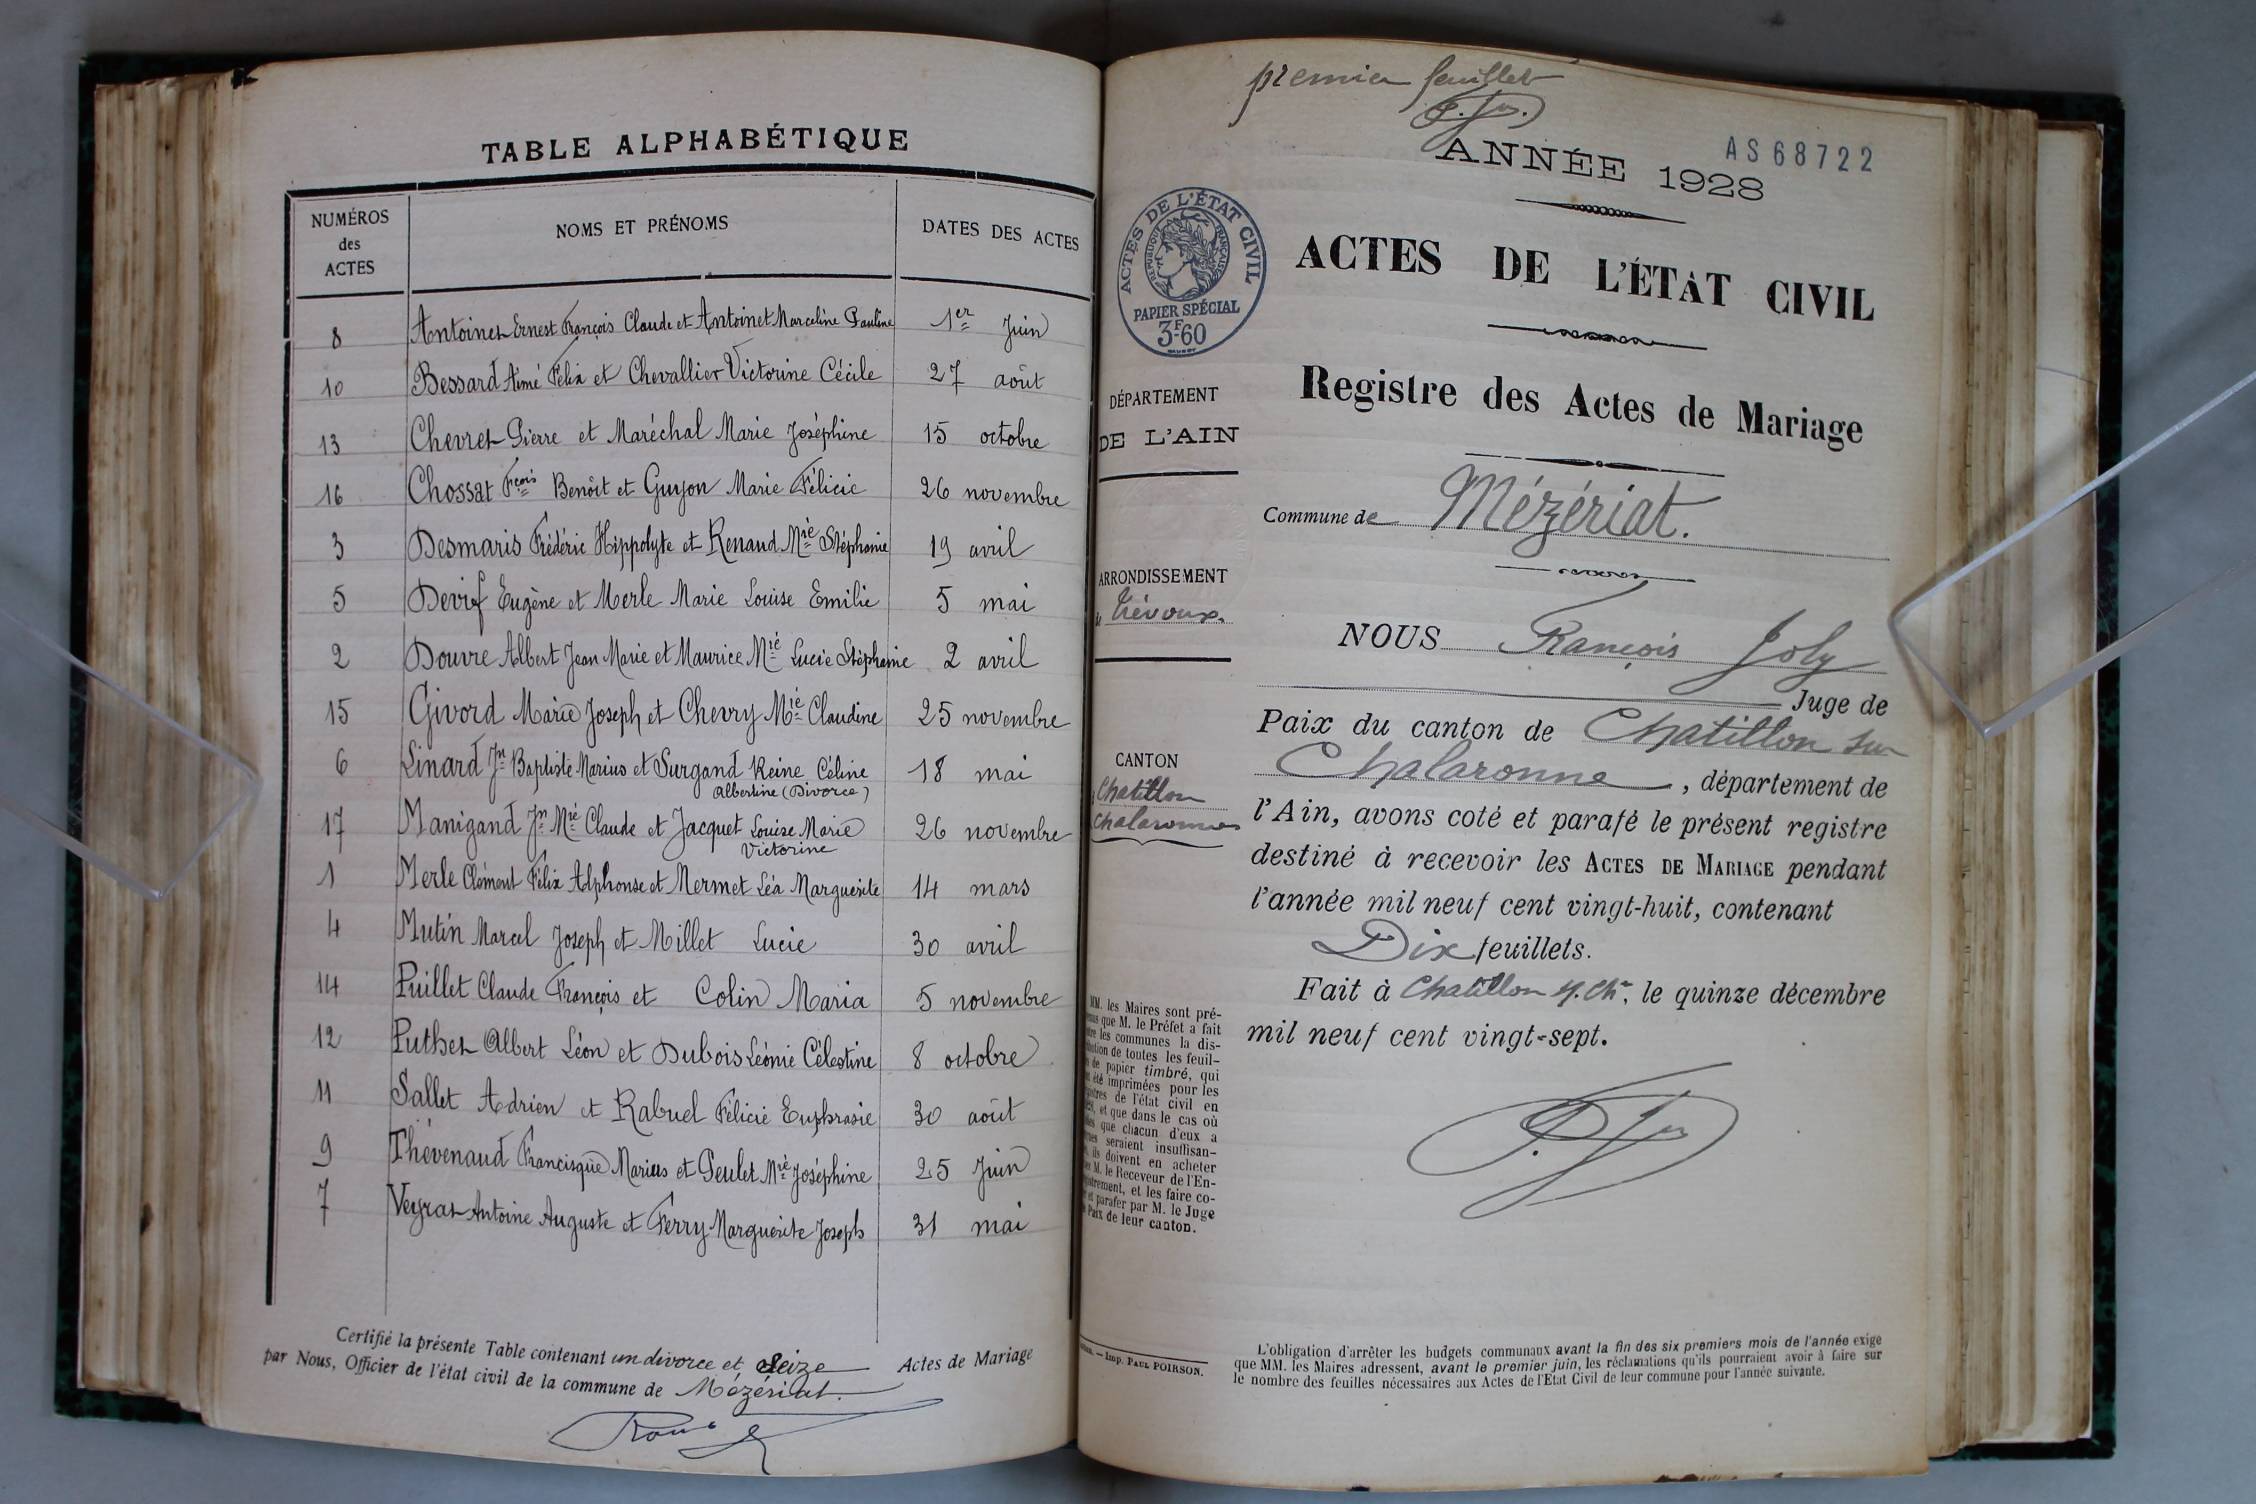 TABLE ALPHABÉTIQUE
NUMÉROS des ACTES
NOMS ET PRÉNOMS
DATES DES ACTES
8 Antoinet Ernest François Claude et Antoinet Marceline Pauline 1er Juin
10 Bessard Aimé Félix et Chevallier Victorine Cécile 27 août
13 Chevret Pierre et Maréchal Marie Joséphine 15 octobre
16 Chossat Fçois Benôit et Guyon Marie Félicie 26 novembre
3 Desmaris Frédéric Hippolyte et Renaud Mie Stéphanie 19 avril
5 Devif Eugène et Merle Marie Louise Emilie 5 mai
2 Douvre Albert Jean Marie et Maurice Mie Lucie Stéphanie 2 avril
15 Givord Marie Joseph et Chevry Mie Claudine 25 novembre
6 Linard Jn Baptiste Marius et Surgand Reine Céline 18 mai
Albertine (Divorce)
17 Manigand Jn Mie Claude et Jacquet Louise Marie 26 novembre
Victorine
1 Merle Clément Félix Alphonse et Mermet Léa Marguerite 14 mars
4 Mutin Marcel Joseph et Millet Lucie 30 avril
14 Puillet Claude François et Colin Maria 5 novembre
12 Puthet Albert Léon et Dubois Léonie Célestine 8 octobre
11 Sallet Adrien et Rabuel Félicie Euphrasie 30 août
9 Thévenaud Francisque Marius et Peulet Mie Joséphine 25 Juin
7 Veyrat Antoine Auguste et Ferry Marguerite Joseph 31 mai
Certifié la présente Table contenant un divorce et seize Actes de Mariage
par Nous, Officier de l'état civil de la commune de Mézériat.
premier feuillet
ANNÉE 1928
AS68722
ACTES DE L'ÉTAT CIVIL
RÉPUBLIQUE FRANÇAISE
PAPIER SPÉCIAL
3F60
ACTES DE L'ÉTAT CIVIL
Registre des Actes de Mariage
DÉPARTEMENT
DE L'AIN
Commune de Mézériat.
ARRONDISSEMENT
de Trévoux.
NOUS François Joly
Juge de
Paix du canton de Chatillon sur
Chalaronne, département de
l'Ain, avons coté et parafé le présent registre
destiné à recevoir les ACTES DE MARIAGE pendant
l'année mil neuf cent vingt-huit, contenant
Dix feuillets.
Fait à Chatillon s. Chne, le quinze décembre
mil neuf cent vingt-sept.
CANTON
Chatillon
Chalaronne
MM. les Maires sont pré-
que M. le Préfet a fait
les communes la dis-
de toutes les feuil-
de papier timbré, qui
été imprimées pour les
de l'état civil en
et que dans le cas où
que chacun d'eux a
seraient insuffisan-
ils doivent en acheter
M. le Receveur de l'En-
et les faire co-
et parafer par M. le Juge
Paix de leur canton.
— Imp. PAUL POIRSON.
L'obligation d'arrêter les budgets communaux avant la fin des six premiers mois de l'année exige
que MM. les Maires adressent, avant le premier juin, les réclamations qu'ils pourraient avoir à faire sur
le nombre des feuilles nécessaires aux Actes de l'Etat Civil de leur commune pour l'année suivante.